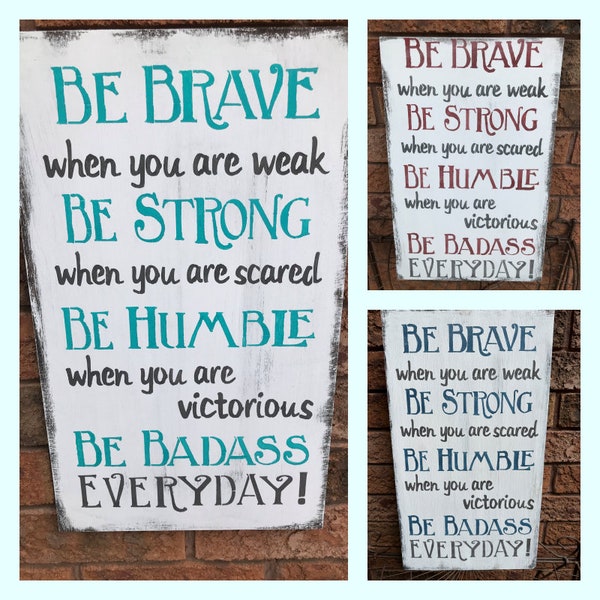 BE BRAVE
when you are weak
BE STRONG
when you are scared
BE HUMBLE
when you are
victorious
BE BADASS
EVERYDAY!
BE BRAVE
when you are weak
BE STRONG
when you are scared
BE HUMBLE
when you are
victorious
BE BADASS
EVERYDAY!
BE BRAVE
when you are weak
BE STRONG
when you are scared
BE HUMBLE
when you are
victorious
BE BADASS
EVERYDAY!